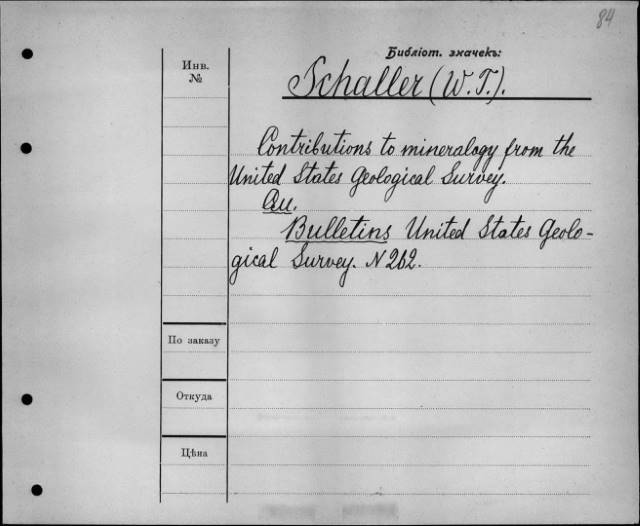 84
Библіот. значекъ:
Инв.
№
Schaller (W. T.).
Contributions to mineralogy from the
United States Geological Survey.
Au.
Bulletins United States Geolo-
gical Survey. N 262.
По заказу
Откуда
Цѣна